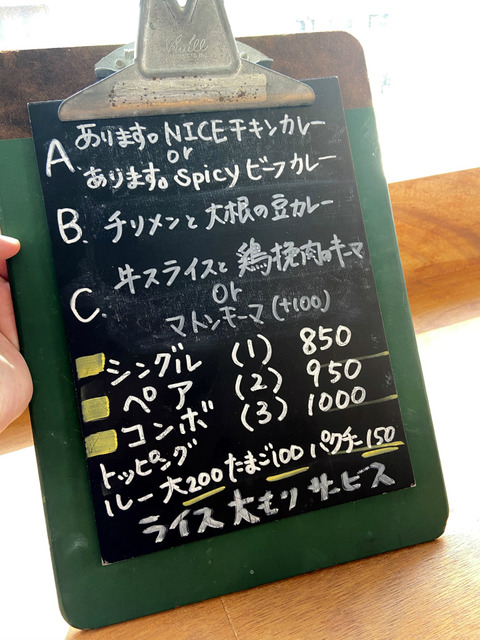 A
あります。NICEチキンカレー
or
あります。Spicyビーフカレー
B. チリメンと大根の豆カレー
C. 牛スライスと鶏挽肉のキーマ
or
マトンキーマ(+100)
シングル (1) 850
ペア (2) 950
コンボ (3) 1000
トッピング
ルー大200 たまご100 パクチー150
ライス大もりサービス